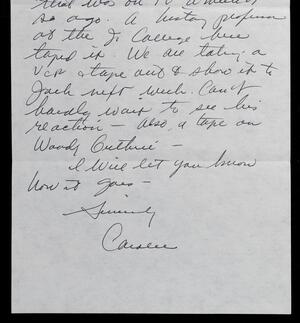 that was on TV a month
so ago. A history professor
at the Jr College here
taped it. We are taking a
VCR & tape out & show it to
Jack next week. Can't
hardly wait to see his
reaction – also a tape on
Woody Guthrie –
I will let you know
how it goes –
Sincerely